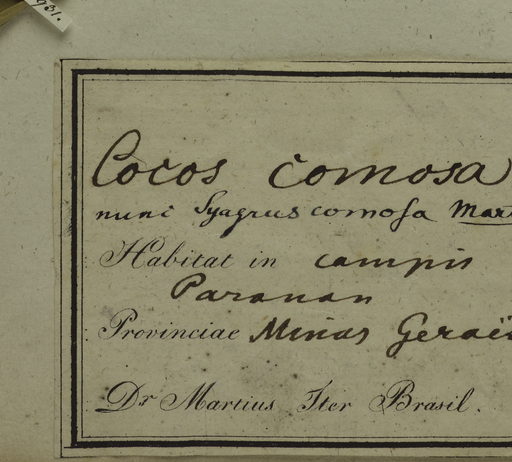 931.
Cocos comosa
nunc Syagrus comosa Mart
Habitat in campis
Paranan
Provinciae Minas Geraë
Dr Martius Iter Brasil.